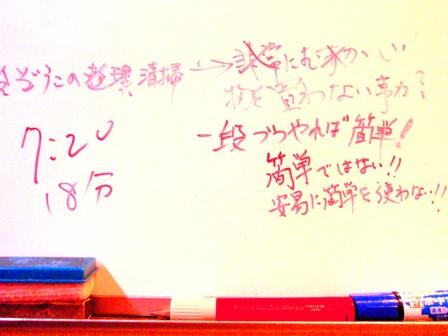 ぞうこの整理清掃 → 非常にむずかしい
物を買わない事か?
一段づつやれば簡単!
簡単ではない!!
安易に簡単を使わない!!
7:20
18分
ボード